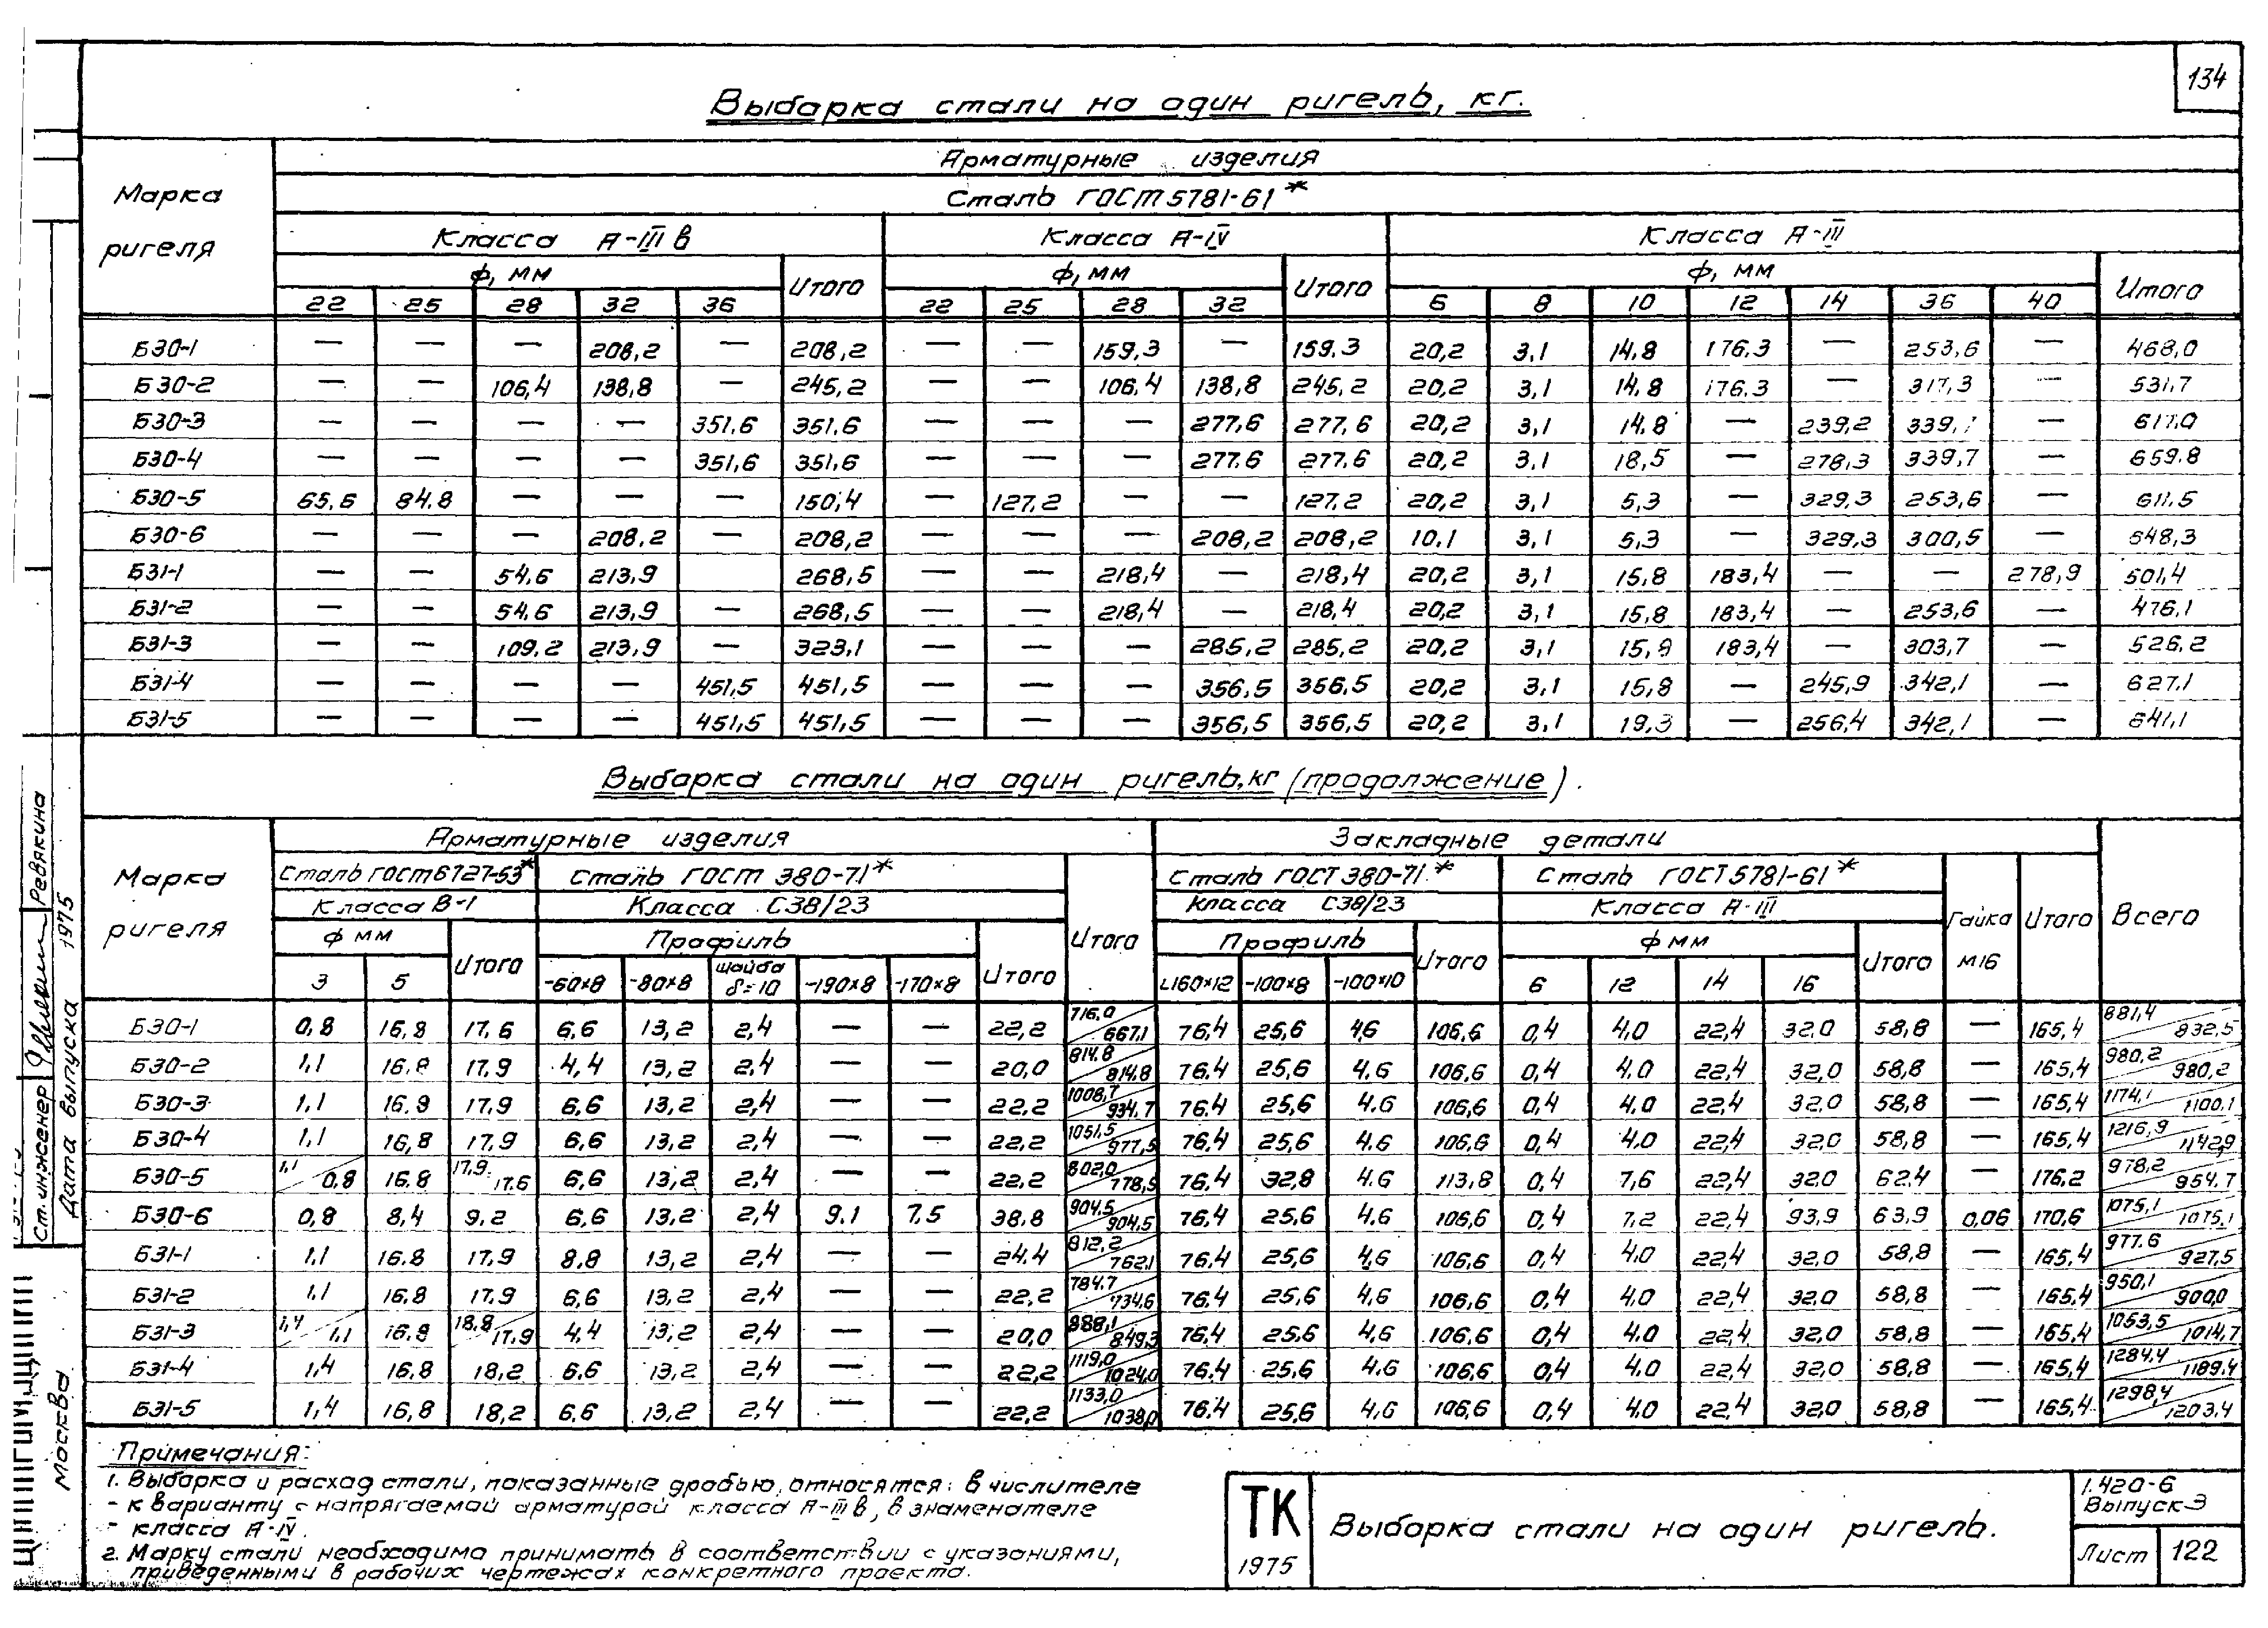 134
Выборка стали на один ригель, кг.
Марка ригеля
Арматурные изделия
Сталь ГОСТ 5781-61*
Класса А-III в | Класса А-IV | Класса А-III
ф, мм | Итого | ф, мм | Итого | ф, мм | Итого
22 | 25 | 28 | 32 | 36 | 22 | 25 | 28 | 32 | 6 | 8 | 10 | 12 | 14 | 36 | 40
Б30-1 | — | — | — | 208,2 | — | 208,2 | — | — | 159,3 | — | 159,3 | 20,2 | 3,1 | 14,8 | 176,3 | — | 253,6 | — | 468,0
Б30-2 | — | — | 106,4 | 138,8 | — | 245,2 | — | — | 106,4 | 138,8 | 245,2 | 20,2 | 3,1 | 14,8 | 176,3 | — | 317,3 | — | 531,7
Б30-3 | — | — | — | — | 351,6 | 351,6 | — | — | — | 277,6 | 277,6 | 20,2 | 3,1 | 14,8 | — | 239,2 | 339,7 | — | 617,0
Б30-4 | — | — | — | — | 351,6 | 351,6 | — | — | — | 277,6 | 277,6 | 20,2 | 3,1 | 18,5 | — | 278,3 | 339,7 | — | 659,8
Б30-5 | 65,6 | 84,8 | — | — | — | 150,4 | — | 127,2 | — | — | 127,2 | 20,2 | 3,1 | 5,3 | — | 329,3 | 253,6 | — | 611,5
Б30-6 | — | — | — | 208,2 | — | 208,2 | — | — | — | 208,2 | 208,2 | 10,1 | 3,1 | 5,3 | — | 329,3 | 300,5 | — | 648,3
Б31-1 | — | — | 54,6 | 213,9 | | 268,5 | — | — | 218,4 | — | 218,4 | 20,2 | 3,1 | 15,8 | 183,4 | — | — | 278,9 | 501,4
Б31-2 | — | — | 54,6 | 213,9 | — | 268,5 | — | — | 218,4 | — | 218,4 | 20,2 | 3,1 | 15,8 | 183,4 | — | 253,6 | — | 476,1
Б31-3 | — | — | 109,2 | 213,9 | — | 323,1 | — | — | — | 285,2 | 285,2 | 20,2 | 3,1 | 15,8 | 183,4 | — | 303,7 | — | 526,2
Б31-4 | — | — | — | — | 451,5 | 451,5 | — | — | — | 356,5 | 356,5 | 20,2 | 3,1 | 15,8 | — | 245,9 | 342,1 | — | 627,1
Б31-5 | — | — | — | — | 451,5 | 451,5 | — | — | — | 356,5 | 356,5 | 20,2 | 3,1 | 19,3 | — | 256,4 | 342,1 | — | 641,1
Выборка стали на один ригель, кг (продолжение).
Марка ригеля
Арматурные изделия | Закладные детали | Всего
Сталь ГОСТ 6727-53* | Сталь ГОСТ 380-71* | Итого | Сталь ГОСТ 380-71* | Сталь ГОСТ 5781-61* | Гайка М16 | Итого
Класса В-I | Класса С38/23 | Класса С38/23 | Класса А-III
ф мм | Итого | Профиль | Итого | Профиль | Итого | ф мм | Итого
3 | 5 | -60×8 | -80×8 | шайба δ=10 | -190×8 | -170×8 | L160×12 | -100×8 | -100×10 | 6 | 12 | 14 | 16
Б30-1 | 0,8 | 16,8 | 17,6 | 6,6 | 13,2 | 2,4 | — | — | 22,2 | 716,0/667,1 | 76,4 | 25,6 | 4,6 | 106,6 | 0,4 | 4,0 | 22,4 | 32,0 | 58,8 | — | 165,4 | 881,4/832,5
Б30-2 | 1,1 | 16,8 | 17,9 | 4,4 | 13,2 | 2,4 | — | — | 20,0 | 814,8/814,8 | 76,4 | 25,6 | 4,6 | 106,6 | 0,4 | 4,0 | 22,4 | 32,0 | 58,8 | — | 165,4 | 980,2/980,2
Б30-3 | 1,1 | 16,8 | 17,9 | 6,6 | 13,2 | 2,4 | — | — | 22,2 | 1008,7/934,7 | 76,4 | 25,6 | 4,6 | 106,6 | 0,4 | 4,0 | 22,4 | 32,0 | 58,8 | — | 165,4 | 1174,1/1100,1
Б30-4 | 1,1 | 16,8 | 17,9 | 6,6 | 13,2 | 2,4 | — | — | 22,2 | 1051,5/977,5 | 76,4 | 25,6 | 4,6 | 106,6 | 0,4 | 4,0 | 22,4 | 32,0 | 58,8 | — | 165,4 | 1216,9/1142,9
Б30-5 | 1,1/0,8 | 16,8 | 17,9/17,6 | 6,6 | 13,2 | 2,4 | — | — | 22,2 | 802,0/778,5 | 76,4 | 32,8 | 4,6 | 113,8 | 0,4 | 7,6 | 22,4 | 32,0 | 62,4 | — | 176,2 | 978,2/954,7
Б30-6 | 0,8 | 8,4 | 9,2 | 6,6 | 13,2 | 2,4 | 9,1 | 7,5 | 38,8 | 904,5/904,5 | 76,4 | 25,6 | 4,6 | 106,6 | 0,4 | 7,2 | 22,4 | 93,9 | 63,9 | 0,06 | 170,6 | 1075,1/1075,1
Б31-1 | 1,1 | 16,8 | 17,9 | 8,8 | 13,2 | 2,4 | — | — | 24,4 | 812,2/762,1 | 76,4 | 25,6 | 4,6 | 106,6 | 0,4 | 4,0 | 22,4 | 32,0 | 58,8 | — | 165,4 | 977,6/927,5
Б31-2 | 1,1 | 16,8 | 17,9 | 6,6 | 13,2 | 2,4 | — | — | 22,2 | 784,7/734,6 | 76,4 | 25,6 | 4,6 | 106,6 | 0,4 | 4,0 | 22,4 | 32,0 | 58,8 | — | 165,4 | 950,1/900,0
Б31-3 | 1,4/1,1 | 16,8 | 18,8/17,9 | 4,4 | 13,2 | 2,4 | — | — | 20,0 | 888,1/849,3 | 76,4 | 25,6 | 4,6 | 106,6 | 0,4 | 4,0 | 22,4 | 32,0 | 58,8 | — | 165,4 | 1053,5/1014,7
Б31-4 | 1,4 | 16,8 | 18,2 | 6,6 | 13,2 | 2,4 | — | — | 22,2 | 1119,0/1024,0 | 76,4 | 25,6 | 4,6 | 106,6 | 0,4 | 4,0 | 22,4 | 32,0 | 58,8 | — | 165,4 | 1284,4/1189,4
Б31-5 | 1,4 | 16,8 | 18,2 | 6,6 | 13,2 | 2,4 | — | — | 22,2 | 1133,0/1038,0 | 76,4 | 25,6 | 4,6 | 106,6 | 0,4 | 4,0 | 22,4 | 32,0 | 58,8 | — | 165,4 | 1298,4/1203,4
Примечания:
1. Выборка и расход стали, показанные дробью, относятся: в числителе
- к варианту с напрягаемой арматурой класса А-III в, в знаменателе
- класса А-IV.
2. Марку стали необходимо принимать в соответствии с указаниями,
приведенными в рабочих чертежах конкретного проекта.
ТК
1975
Выборка стали на один ригель.
1.420-6
Выпуск 3
Лист 122
Ст. инженер Ревякина
Дата выпуска 1975
Москва